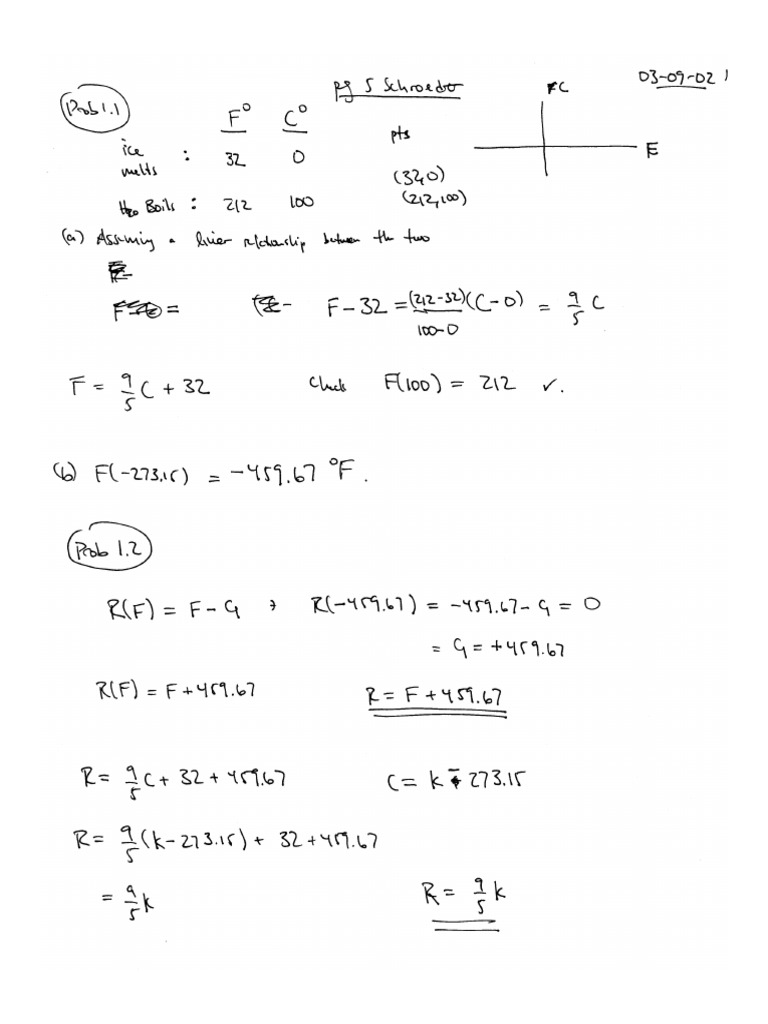 03-09-02 1
Prob 1.1
pg 5 Schroeder
F° C° pts
ice melts : 32 0 (32,0)
H2O Boils : 212 100 (212,100)
C
F
(a) Assuming a linier relationship between the two
F - 32 = (212-32)/(100-0) (C-0) = 9/5 C
F = 9/5 C + 32 Check F(100) = 212 ✓.
(b) F(-273.15) = -459.67 °F.
Prob 1.2
R(F) = F - G , R(-459.67) = -459.67 - G = 0
= G = +459.67
R(F) = F + 459.67 R = F + 459.67
R = 9/5 C + 32 + 459.67 C = K - 273.15
R = 9/5 (K - 273.15) + 32 + 459.67
= 9/5 K R = 9/5 K